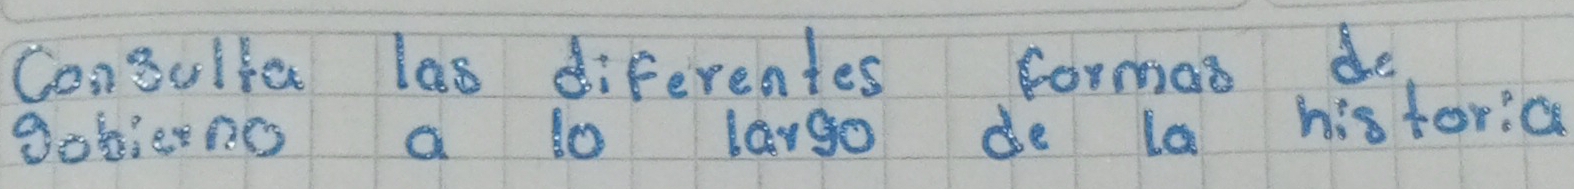 Consulta las diferentes formas de
gobierno a lo largo de la historia